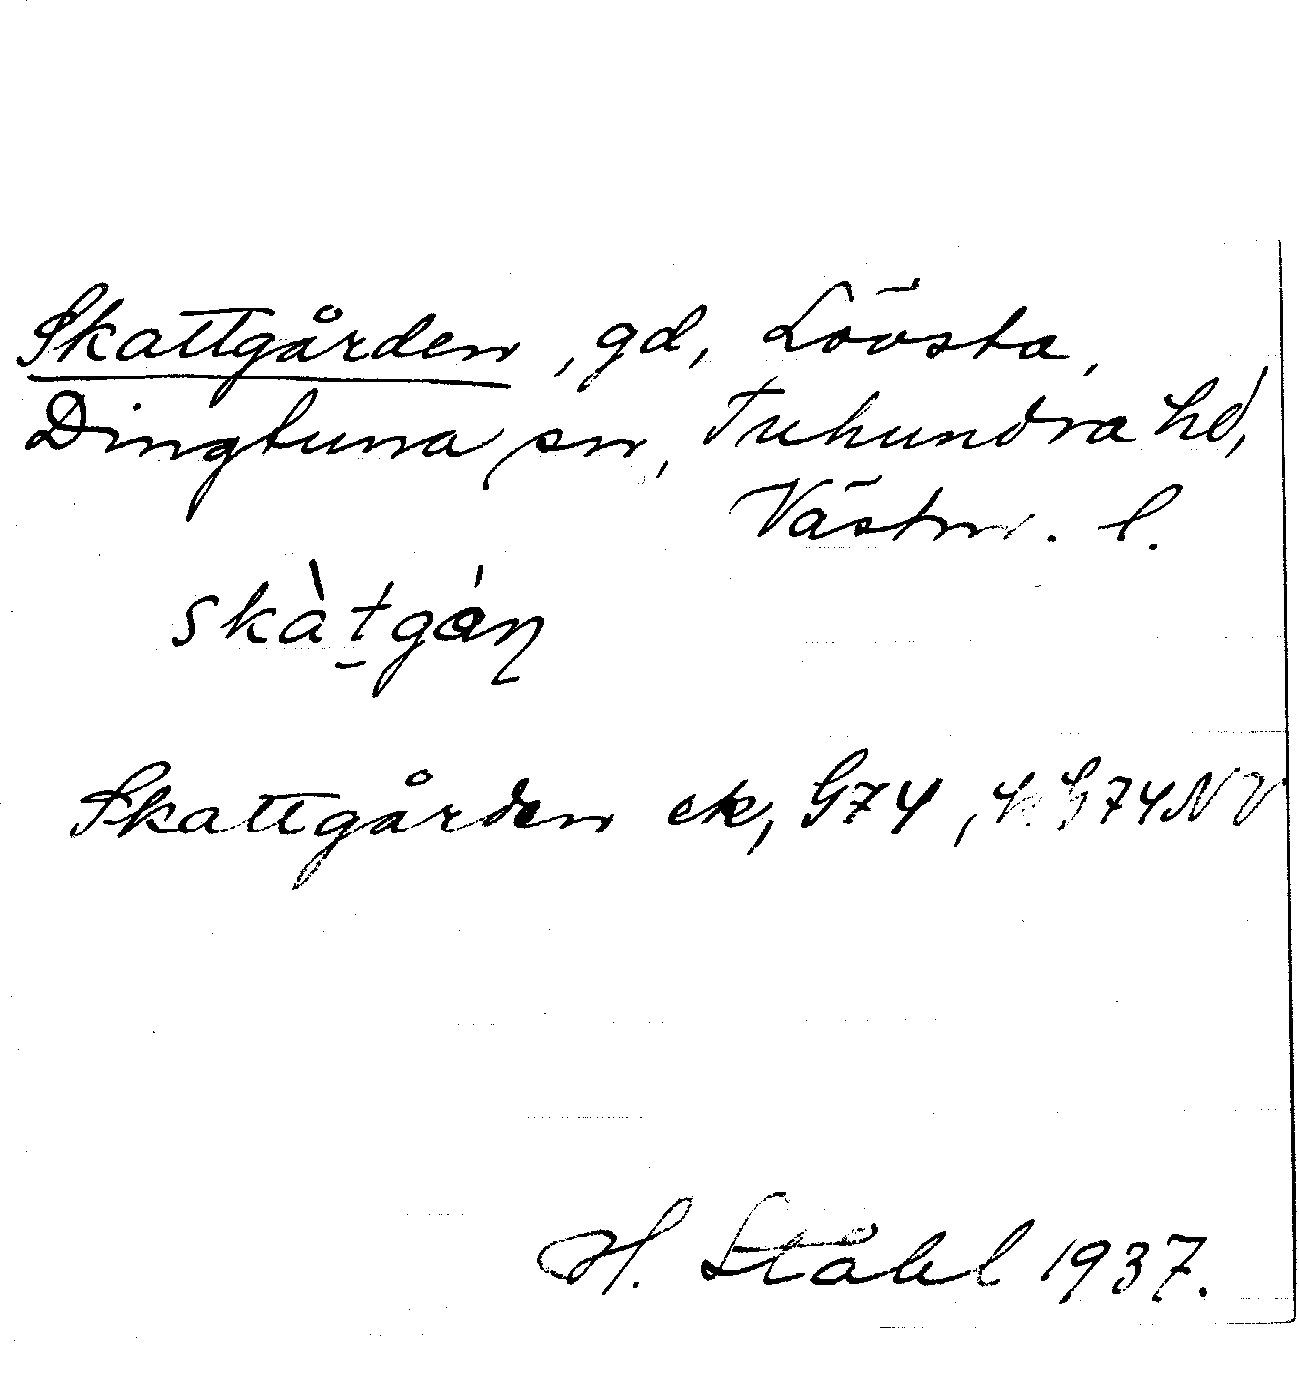 Skattgården, gd, Lövsta,
Dingtuna sn, Tuhundra hd,
Västm. l.
skàt̠gán
Skattgården ek, G74, h G74NV
H. Ståhl 1937.